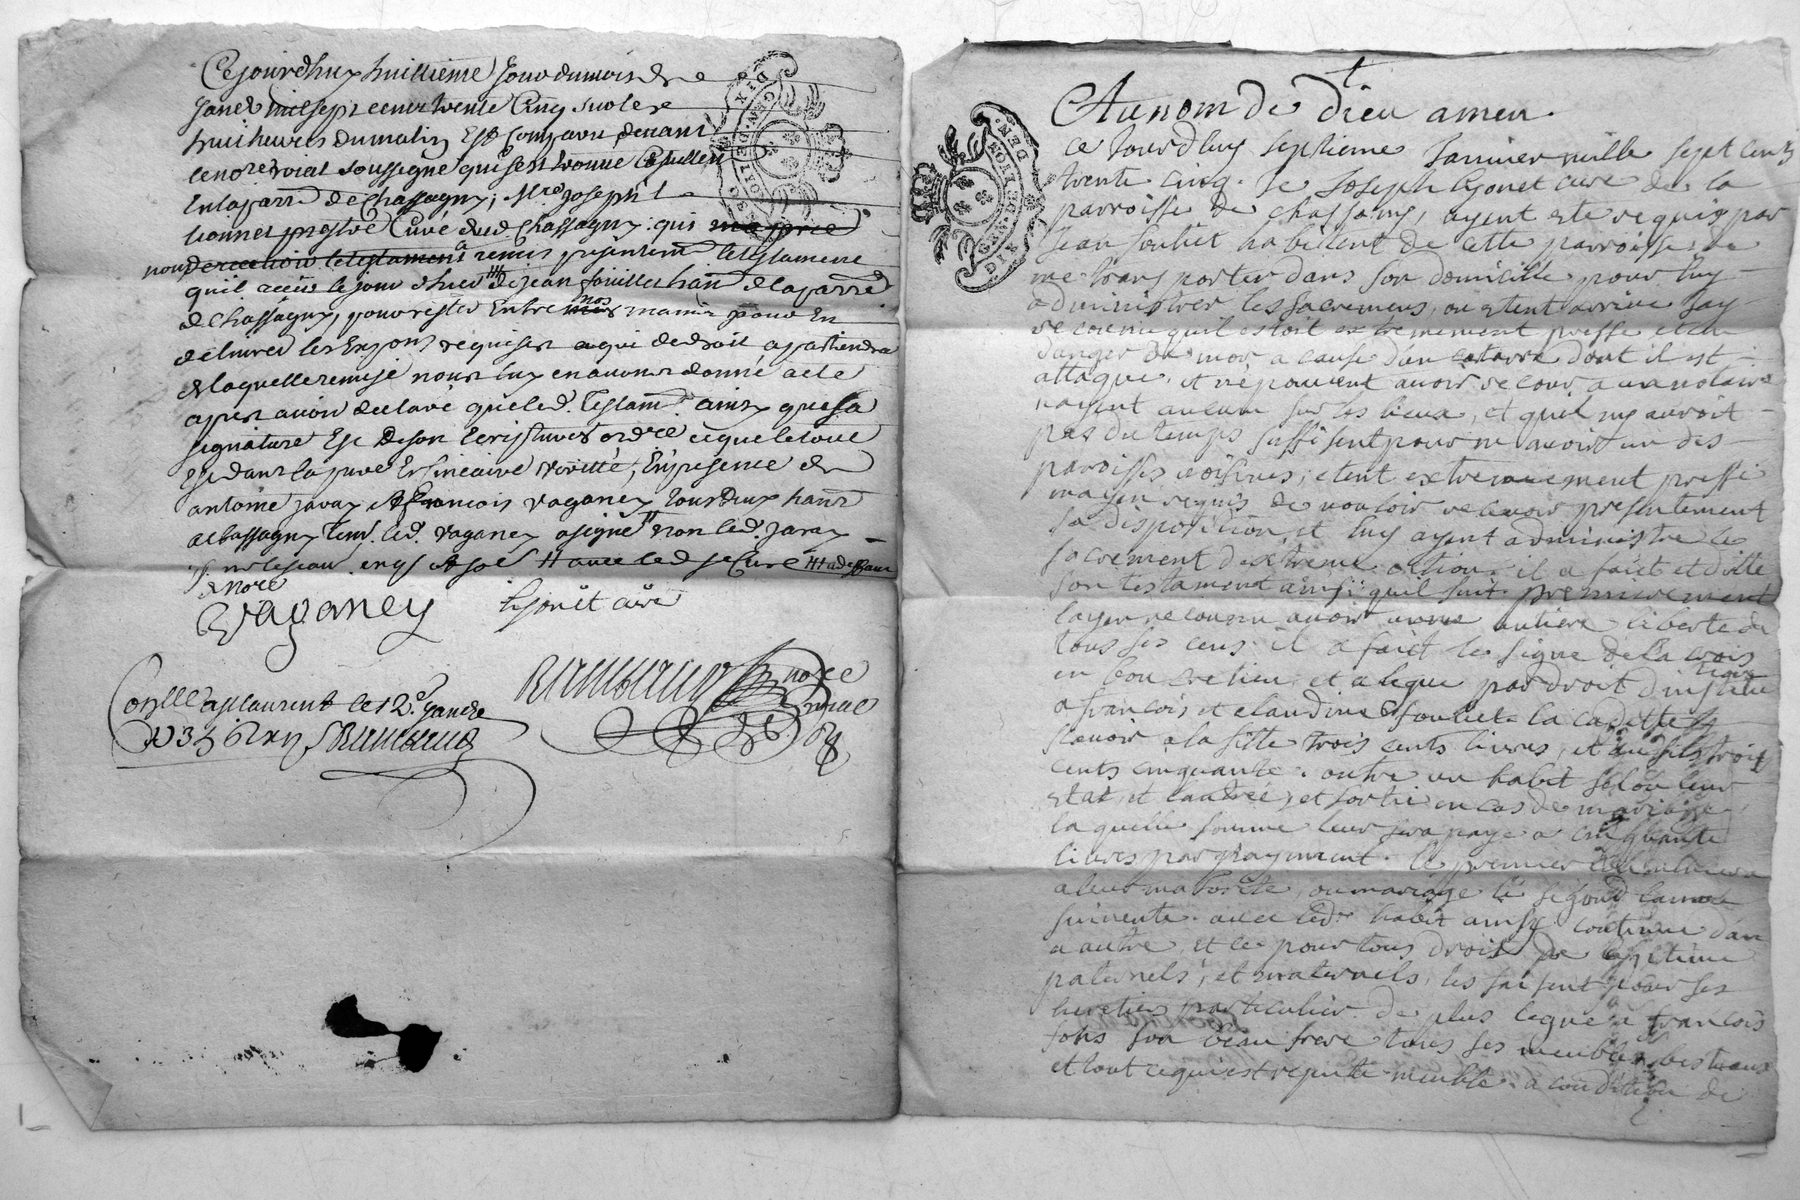 Cejourdhuy huittieme jour du mois de
Janer mil sept cent trente Cinq sur les
huit heures du matin Est Comparu devant
le nore roial soussigné qui sest trouvé
En la parre de Chassagny, Mre Joseph
prestre Curé dud Chassagny, qui
nous a remis presentemt le testament
quil receu le jour dhier de jean fouillet hant de la parre
de Chassagny, pour rester Entre nos mains pour En
delivrer les Expons requises a qui de droit apartiendra
de laquelle remise nous luy en avons donné acte
apres avoir declaré que led. Testamt. ainsy que sa
signature Est de son Ecriture ordre et que le tout
Est dans la pure Et sincaire verité, En presence de
antoine javay & francois vaganey tous deux hants
a Chassagny temt. led. vaganey a signé non led. javay
& nore
Vaganey Ligonêt curé
nore
roial
Conllé a St laurent le 12e janere
1735
DE LYON
+
Au nom de dieu amen.
ce Jourdhuy septieme Janvier mille sept cent
trente cinq. Je Joseph Ligonet curé de la
parroisse de Chassagny, ayent esté requis par
Jean fouliet habitent de cette parroisse de
me transporter dans son domicille pour luy
administrer les sacremens, ou etent arrivé Jay
reconnu quil estoit extremement pressé et en
danger de mor a cause dun catarre dont il est
attaqué, et ne pouvent avoir recour a un notaire
nayent aucun sur les lieux, et quil ny auroit
pas du temps suffisent pour en avoir un des
parroisses voisines, etent extremement pressé
mayen requis de vouloir recevoir presentement
sa disposition, et luy ayent administré le
sacrement dextreme onction, il a fait et dicté
son testament ainsi quil suit. premierement
layen reconnu avoir une entiere liberté de
tous ses cens il a fait le signe de la croix
en bon cretien et a legué par droit dinstitution
a francois et claudine fouliet la cadette
scavoir a la fille trois cents livres, et au fils trois
cents cinquante. outre un habit selon leur
etat et lautre, et sorti en cas de mariage
laquelle somme leur sera payé a cinquante
livres par payement. le premier
a leur majorité, ou mariage le segond lannée
suivente. avec led. habit ainsy continué dan
a autre, et ce pour tous droit de legitime
paternels, et maternels, les faisent pour ses
heretiers particulier. de plus legue a francois
fons son beau frere tous ses meubles, bestiaux
et tout ce qui est reputé meuble a condition de